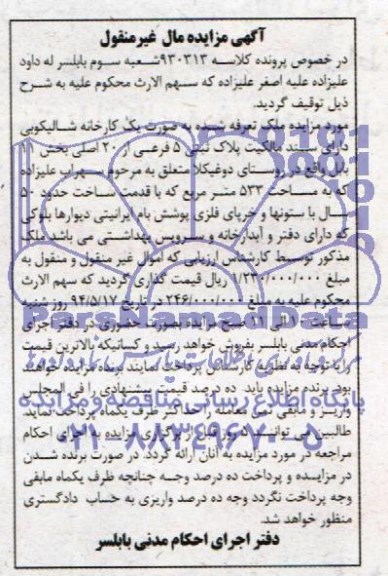 آگهی مزایده مال غیرمنقول
در خصوص پرونده کلاسه ۹۳۰۳۱۳شعبه سوم بابلسر له داود
علیزاده علیه اصغر علیزاده که سهم الارث محکوم علیه به شرح
ذیل توقیف گردید.
مورد مزایده ملک تعرفه شده به صورت یک کارخانه شالیکوبی
دارای سند مالکیت پلاک ثبتی ۵ فرعی از ۲۰ اصلی بخش ۱۱
بابل واقع در روستای دوغیکلا متعلق به مرحوم سهراب علیزاده
که به مساحت ۵۳۳ متر مربع که با قدمت ساخت حدود ۵۰
سال با ستونها و خرپای فلزی پوشش بام ایرانیتی دیوارها بلوکی
که دارای دفتر و آبدارخانه و سرویس بهداشتی می باشد ملک
مذکور توسط کارشناس ارزیابی که اموال غیر منقول و منقول به
مبلغ ۱/۲۳۰/۰۰۰/۰۰۰ ریال قیمت گذاری گردید که سهم الارث
محکوم علیه به مبلغ ۲۴۶/۰۰۰/۰۰۰ در تاریخ ۹۴/۵/۱۷ روز شنبه
ساعت ۱۰ الی ۱۱ صبح مزایده بصورت حضوری در دفتر اجرای
احکام مدنی بابلسر بفروش خواهد رسید و کسانیکه بالاترین قیمت
را با توجه به نظریه کارشناس پرداخت نمایند برنده مزایده خواهند
بود. برنده مزایده باید ده درصد قیمت پیشنهادی را فی المجلس
واریز و مابقی ثمن معامله را حداکثر ظرف یکماه پرداخت نماید.
طالبین می توانند ۵ روز قبل از برگزاری مزایده به اجرای احکام
مراجعه در مورد مزایده به آنان ارائه گردد. در صورت برنده شدن
در مزایده و پرداخت ده درصد وجه چنانچه ظرف یکماه مابقی
وجه پرداخت نگردد وجه ده درصد واریزی به حساب دادگستری
منظور خواهد شد.
دفتر اجرای احکام مدنی بابلسر
ParsNamadData
پایگاه اطلاع رسانی مناقصه و مزایده
۰۲۱-۸۸۳۴۹۶۷۰-۵